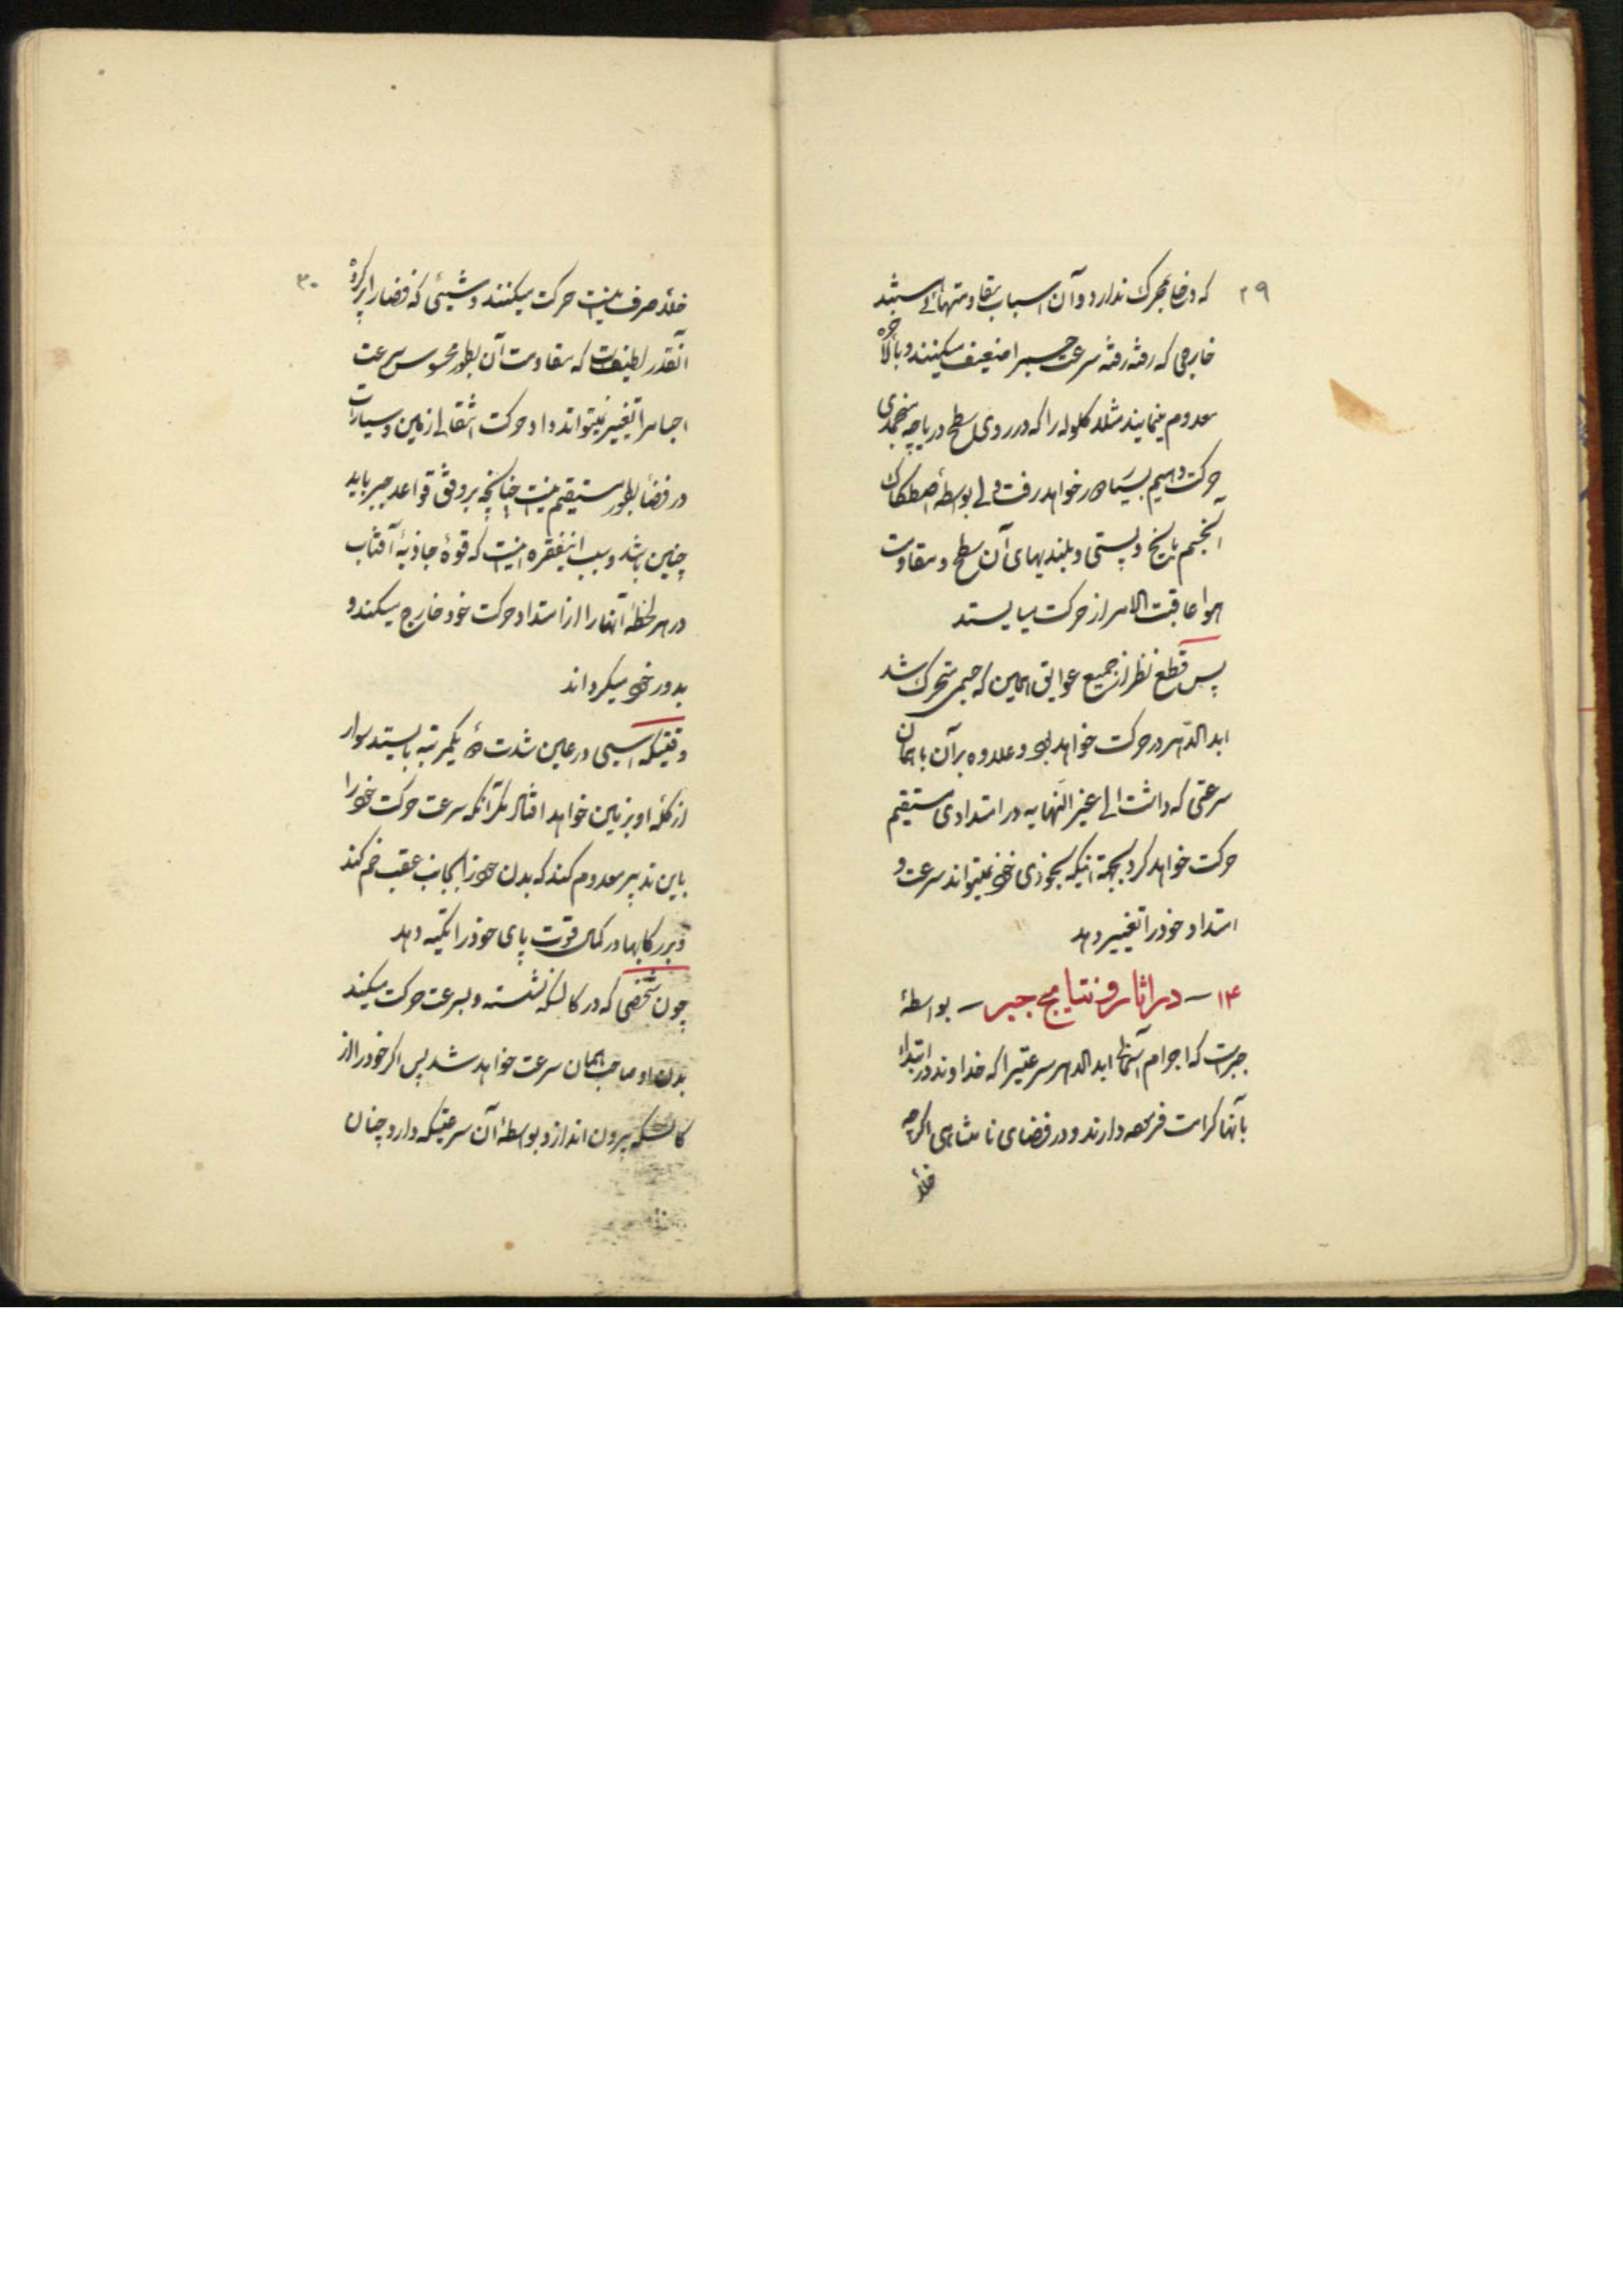 ۲۹
که دخلی بمحرک ندارد و آن اسباب مقاومتهائی باشند
خارجی که رفته رفته سرعت جسم را ضعیف میکنند و بالاخره
معدوم مینمایند مثلا کلوله را که در روی سطح دریاچه منجمدی
حرکت دهیم بسیار دور خواهد رفت ولی بواسطهٔ اصطکاک
آنجسم با یخ و پستی و بلندیهای آن سطح و مقاومت
هوا عاقبت الامر از حرکت میایستد
پس قطع نظر از جمیع عوایق همین که جسمی متحرک شد
ابدالدهر در حرکت خواهد بود و علاوه بر آن با همان
سرعتی که داشت الی غیر النهایه در امتدادی مستقیم
حرکت خواهد کرد بجهة اینکه بخودی خود نمیتواند سرعت و
امتداد خود را تغییر دهد
۱۴ – در اثار و نتایج جبر – بواسطهٔ
جبر است که اجرام آسمانی ابدالدهر سرعتیرا که خداوند در ابتداء
بآنها کرامت فرموده دارند و در فضای نامتناهی اکرچه
خلأ
۳۰
خلأ صرف نیست حرکت میکنند و شیئی که فضا را پر کرده
آنقدر لطیف است که مقاومت آن بطور محسوس سرعت
اجسام را تغییر نمیتواند داد و حرکت انتقالی زمین و سیارات
در فضا بطور مستقیم نیست چنانچه بر وفق قواعد جبر باید
چنین باشد و سبب اینفقره اینست که قوهٔ جاذبهٔ آفتاب
در هر لحظه آنها را از امتداد حرکت خود خارج میکند و
بدور خود میکرداند
وقتیکه اسبی در عین شدت دو یکمرتبه بایستد سوار
از کلهٔ او بزمین خواهد افتاد مکر آنکه سرعت حرکت خود را
باین تدبیر معدوم کند که بدن خود را بجانب عقب خم کند
و بر رکابها در کمال قوت پای خود را تکیه دهد
چون شخصی که در کالسکه نشسته و بسرعت حرکت میکند
بدن او صاحب همان سرعت خواهد شد پس اکر خود را از
کالسکه بیرون اندازد بواسطهٔ آن سرعتیکه دارد چنان